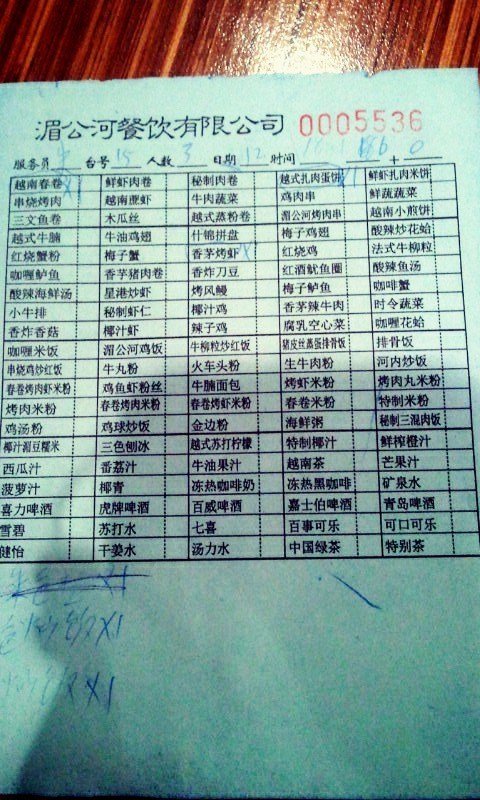 湄公河餐饮有限公司 0005536
服务员 台号 15 人数 3 日期 12 时间 +
越南春卷 X1 鲜虾肉卷 秘制肉卷 越式扎肉蛋饼 X1 鲜虾扎肉米饼
串烧烤肉 越南蔗虾 牛肉蔬菜 鸡肉串 鲜蔬蔬菜
三文鱼卷 木瓜丝 越式蒸粉卷 湄公河烤肉串 越南小煎饼
越式牛腩 牛油鸡翅 什锦拼盘 梅子鸡翅 酸辣炒花蛤
红烧蟹粉 梅子蟹 香茅烤虾 X1 红烧鸡 法式牛柳粒
咖喱鲈鱼 香芋猪肉卷 香炸刀豆 红酒鱿鱼圈 酸辣鱼汤
酸辣海鲜汤 星港炒虾 烤凤鳗 梅子鲈鱼 咖啡蟹
小牛排 秘制虾仁 椰汁鸡 香茅辣牛肉 时令蔬菜
香炸香菇 椰汁虾 辣子鸡 腐乳空心菜 咖喱花蛤
咖喱米饭 湄公河鸡饭 牛柳粒炒红饭 猪皮丝蒸蛋排骨饭 排骨饭
串烧鸡炒红饭 牛丸粉 火车头粉 生牛肉粉 河内炒饭
春卷烤肉虾米粉 鸡鱼虾粉丝 牛腩面包 烤虾米粉 烤肉丸米粉
烤肉米粉 春卷烤肉米粉 春卷烤虾米粉 春卷米粉 特制米粉
鸡汤粉 鸡球炒饭 金边粉 海鲜粥 秘制三混肉饭
椰汁湄豆糯米 三色刨冰 越式苏打柠檬 特制椰汁 鲜榨橙汁
西瓜汁 番荔汁 牛油果汁 越南茶 芒果汁
菠萝汁 椰青 冻热咖啡奶 冻热黑咖啡 矿泉水
喜力啤酒 虎牌啤酒 百威啤酒 嘉士伯啤酒 青岛啤酒
雪碧 苏打水 七喜 百事可乐 可口可乐
健怡 干姜水 汤力水 中国绿茶 特别茶
X1
X1
X1